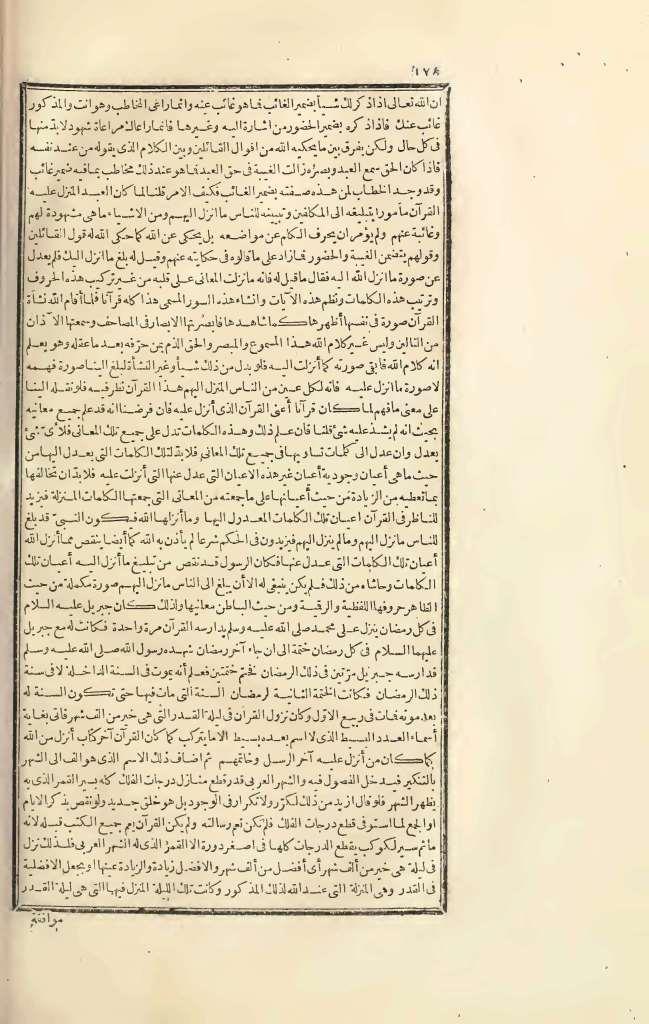 ١٧٨
ان الله تعالى اذا ذكر لك شيأ بضمير الغائب فما هو غائب عنه وانما راعى المخاطب وهو أنت والمذكور
غائب عنك فاذا ذكره بضمير الحضور من اشارة اليه وغيرها فانما راعاك مراعاة شهود لا بد منها
فى كل حال ولكن يفرق بين ما يحكيه الله من أقوال القائلين وبين الكلام الذى يقوله من عند نفسه
فاذا كان الحق سمع العبد وبصره زالت الغيبة فى حق العبد فما هو عند ذلك مخاطب بما فيه ضمير غائب
وقد وجد الخطاب لمن هذه صفته بضمير الغائب فكيف الامر قلنا لما كان العبد المنزل عليه
القرآن مأمورا بتبليغه الى المكلفين وتبيينه للناس ما نزل اليهم ومن الاشياء ما هى مشهودة لهم
وغائبة عنهم ولم يؤمر ان يحرف الكلم عن مواضعه بل يحكى عن الله كما حكى الله له قول القائلين
وقولهم يتضمن الغيبة والحضور فما زاد على ما قالوه فى حكايته عنهم وقيل له بلغ ما انزل اليك فلم يعدل
عن صورة ما انزل الله اليه فقال ما قيل له فانه ما نزلت المعانى على قلبه من غير تركيب هذه الحروف
وترتيب هذه الكلمات ونظم هذه الآيات وانشاء هذه السور المسمى هذا كله قرآنا فلما أقام الله نشأة
القرآن صورة فى نفسها أظهرها كما شاهدها فأبصرتها الابصار فى المصاحف وسمعتها الآذان
من التالين وليس غير كلام الله هذا المسموع والمبصر والحق الذم بمن حرفه بعد ما عقله وهو يعلم
انه كلام الله فابقى صورته كما أنزلت اليه فلو بدل من ذلك شيأ وغير النشأة لبلغ الينا صورة فهمه
لا صورة ما انزل عليه فانه لكل عين من الناس المنزل اليهم هذا القرآن نظر فيه فلو نقله الينا
على معنى ما فهم لما كان قرآنا أعنى القرآن الذى أنزل عليه فان فرضنا انه قد علم جميع معانيه
بحيث انه لم يشذ عليه شئ قلنا فان علم ذلك وهذه الكلمات تدل على جميع تلك المعانى فلأى شئ
يعدل وان عدل الى كلمات تساويها فى جميع تلك المعانى فلا بد لتلك الكلمات التى يعدل اليها من
حيث ما هى أعيان وجودية أعيان غير هذه الاعيان التى عدل عنها التى أنزلت عليه فلا بد ان تخالفها
بما تعطيه من الزيادة من حيث أعيانها على ما جمعته من المعانى التى جمعتها الكلمات المنزلة فيزيد
للناظر فى القرآن اعيان تلك الكلمات المعدول اليها وما أنزلها الله فيكون النبى قد بلغ
للناس ما نزل اليهم وما لم ينزل اليهم فيزيدون فى الحكم شرعا لم يأذن به الله كما أيضا ينقص مما أنزل الله
أعيان تلك الكلمات التى عدل عنها فكان الرسول قد نقص من تبليغ ما أنزل اليه أعيان تلك
الكلمات وحاشاه من ذلك فلم يكن ينبغى له الا أن يبلغ الى الناس ما نزل اليهم صورة مكملة من حيث
الظاهر حروفها اللفظية والرقمية ومن حيث الباطن معانيها ولذلك كان جبريل عليه السلام
فى كل رمضان ينزل على محمد صلى الله عليه وسلم يدارسه القرآن مرة واحدة فكانت له مع جبريل
عليهما السلام فى كل رمضان ختمة الى ان جاء آخر رمضان شهده رسول الله صلى الله عليه وسلم
فدارسه جبريل مرتين فى ذلك الرمضان فختم ختمتين فعلم أنه يموت فى السنة الداخلة لا فى سنة
ذلك الرمضان فكانت الختمة الثانية لرمضان السنة التى مات فيها حتى تكون السنة له
بعد موته فمات فى ربيع الاول وكان نزول القرآن فى ليلة القدر التى هى خير من الف شهر فاتى بغاية
أسماء العدد البسيط الذى لا اسم بعده بسيط الا ما يتركب كما كان القرآن آخر كتاب أنزل من الله
كما كان من أنزل عليه آخر الرسل وخاتمهم ثم اضاف ذلك الاسم الذى هو الف الى الشهر
بالتنكير فيدخل الفصول فيه والشهر العربى قدر قطع منازل درجات الفلك كله بسير القمر الذى به
يظهر الشهر فلو قال أزيد من ذلك لكرر ولا تكرار فى الوجود بل هو خلق جديد ولو نقص بذكر الايام
او الجمع لما استوفى قطع درجات الفلك فلم تكن تعم رسالته ولم يكن القرآن يعم جميع الكتب قبله لانه
ما ثم سير لكوكب يقطع الدرجات كلها فى اصغر دورة الا القمر الذى له الشهر العربى فلذلك نزل
فى ليلة هى خير من ألف شهر أى أفضل من ألف شهر والافضل زيادة والزيادة عينها او يجعل الافضلية
فى القدر وهى المنزلة التى عند الله لذلك المذكور وكانت تلك الليلة المنزل فيها التى هى ليلة القدر
موافقة